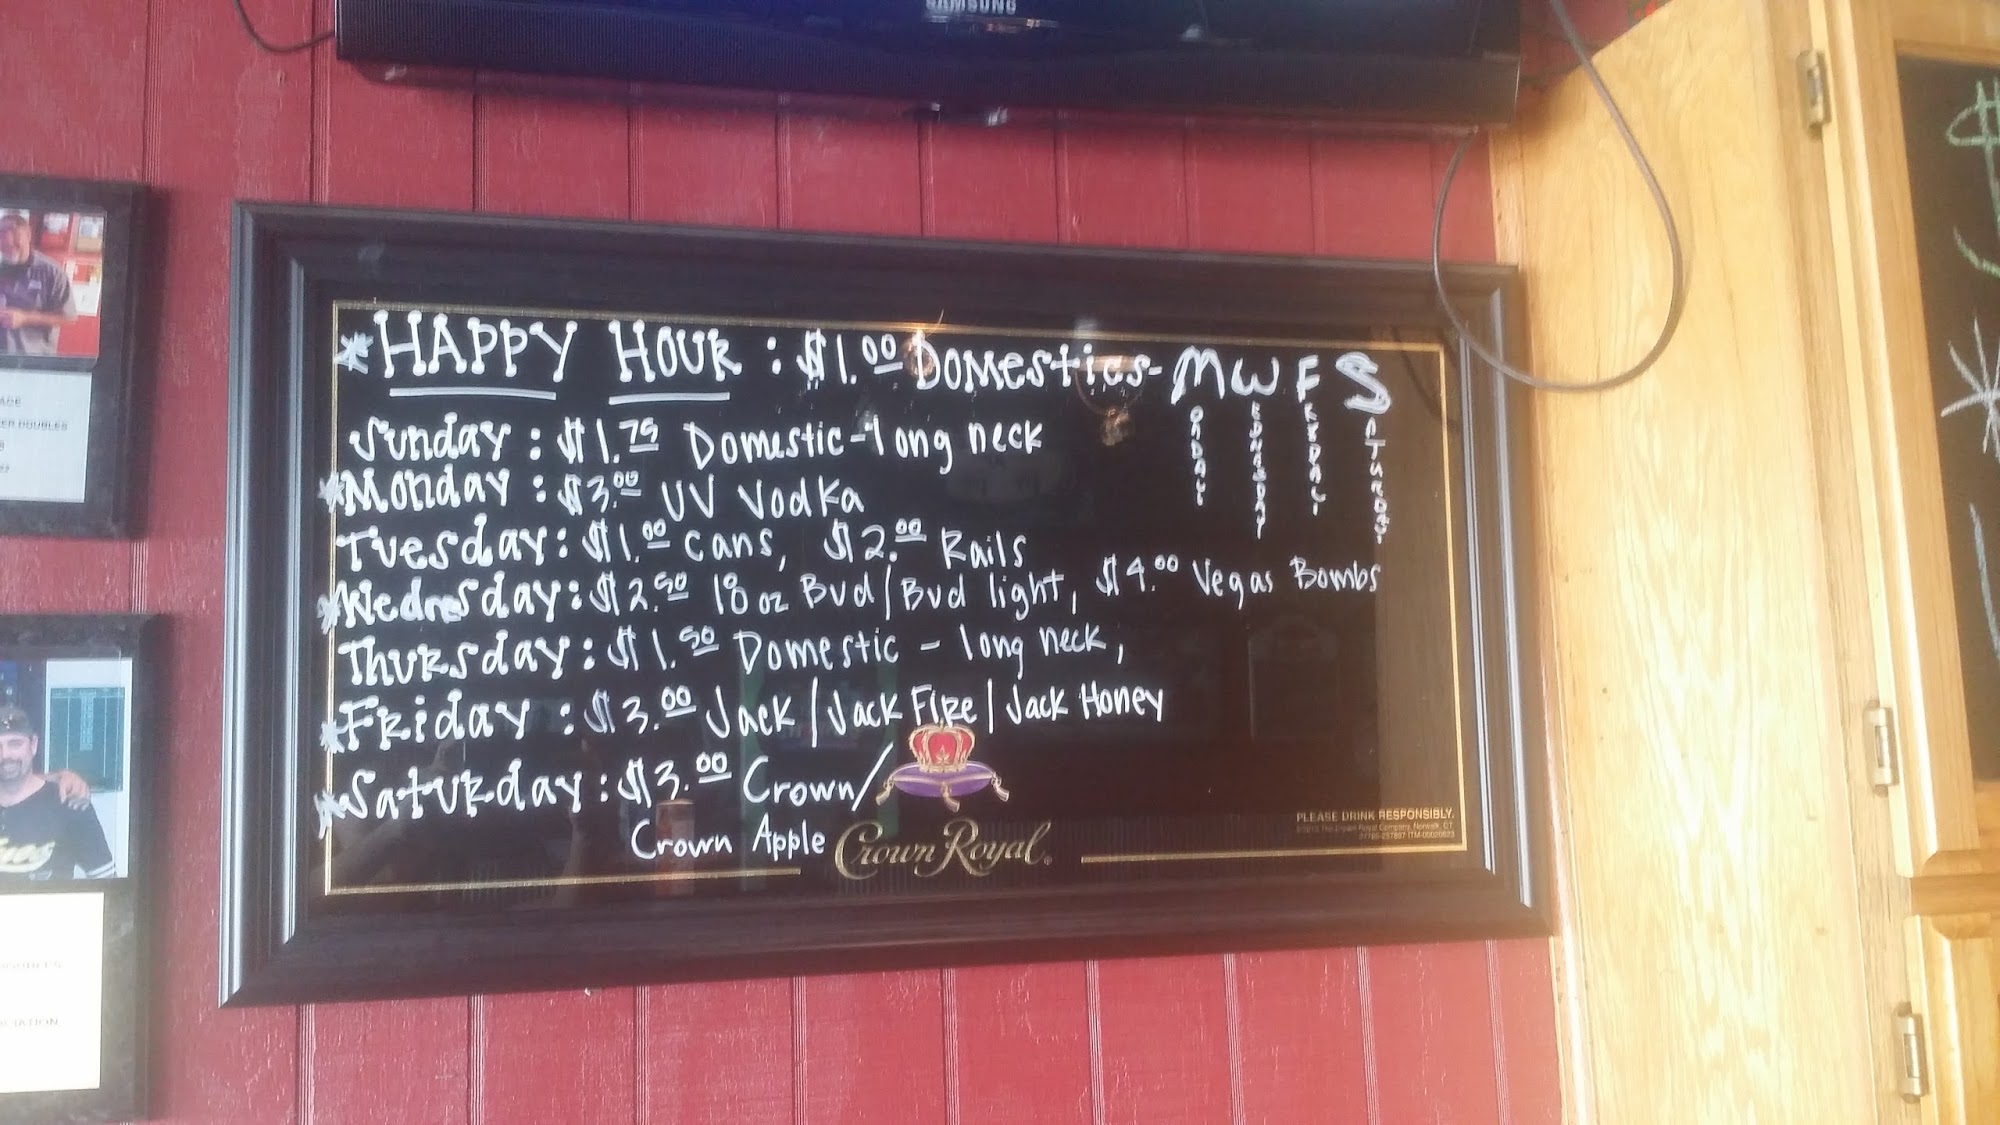 SAMSUNG
* HAPPY HOUR : $1.00 Domestics - MONDAY WEDNESDAY FRIDAY SATURDAY
Sunday : $1.75 Domestic - long neck
* Monday : $3.00 UV Vodka
Tuesday : $1.00 cans, $2.00 Rails
* Wednesday : $2.50 18 oz Bud / Bud light, $4.00 Vegas Bombs
Thursday : $1.50 Domestic - long neck,
* Friday : $3.00 Jack / Jack Fire / Jack Honey
* Saturday : $3.00 Crown /
Crown Apple
Crown Royal
PLEASE DRINK RESPONSIBLY.